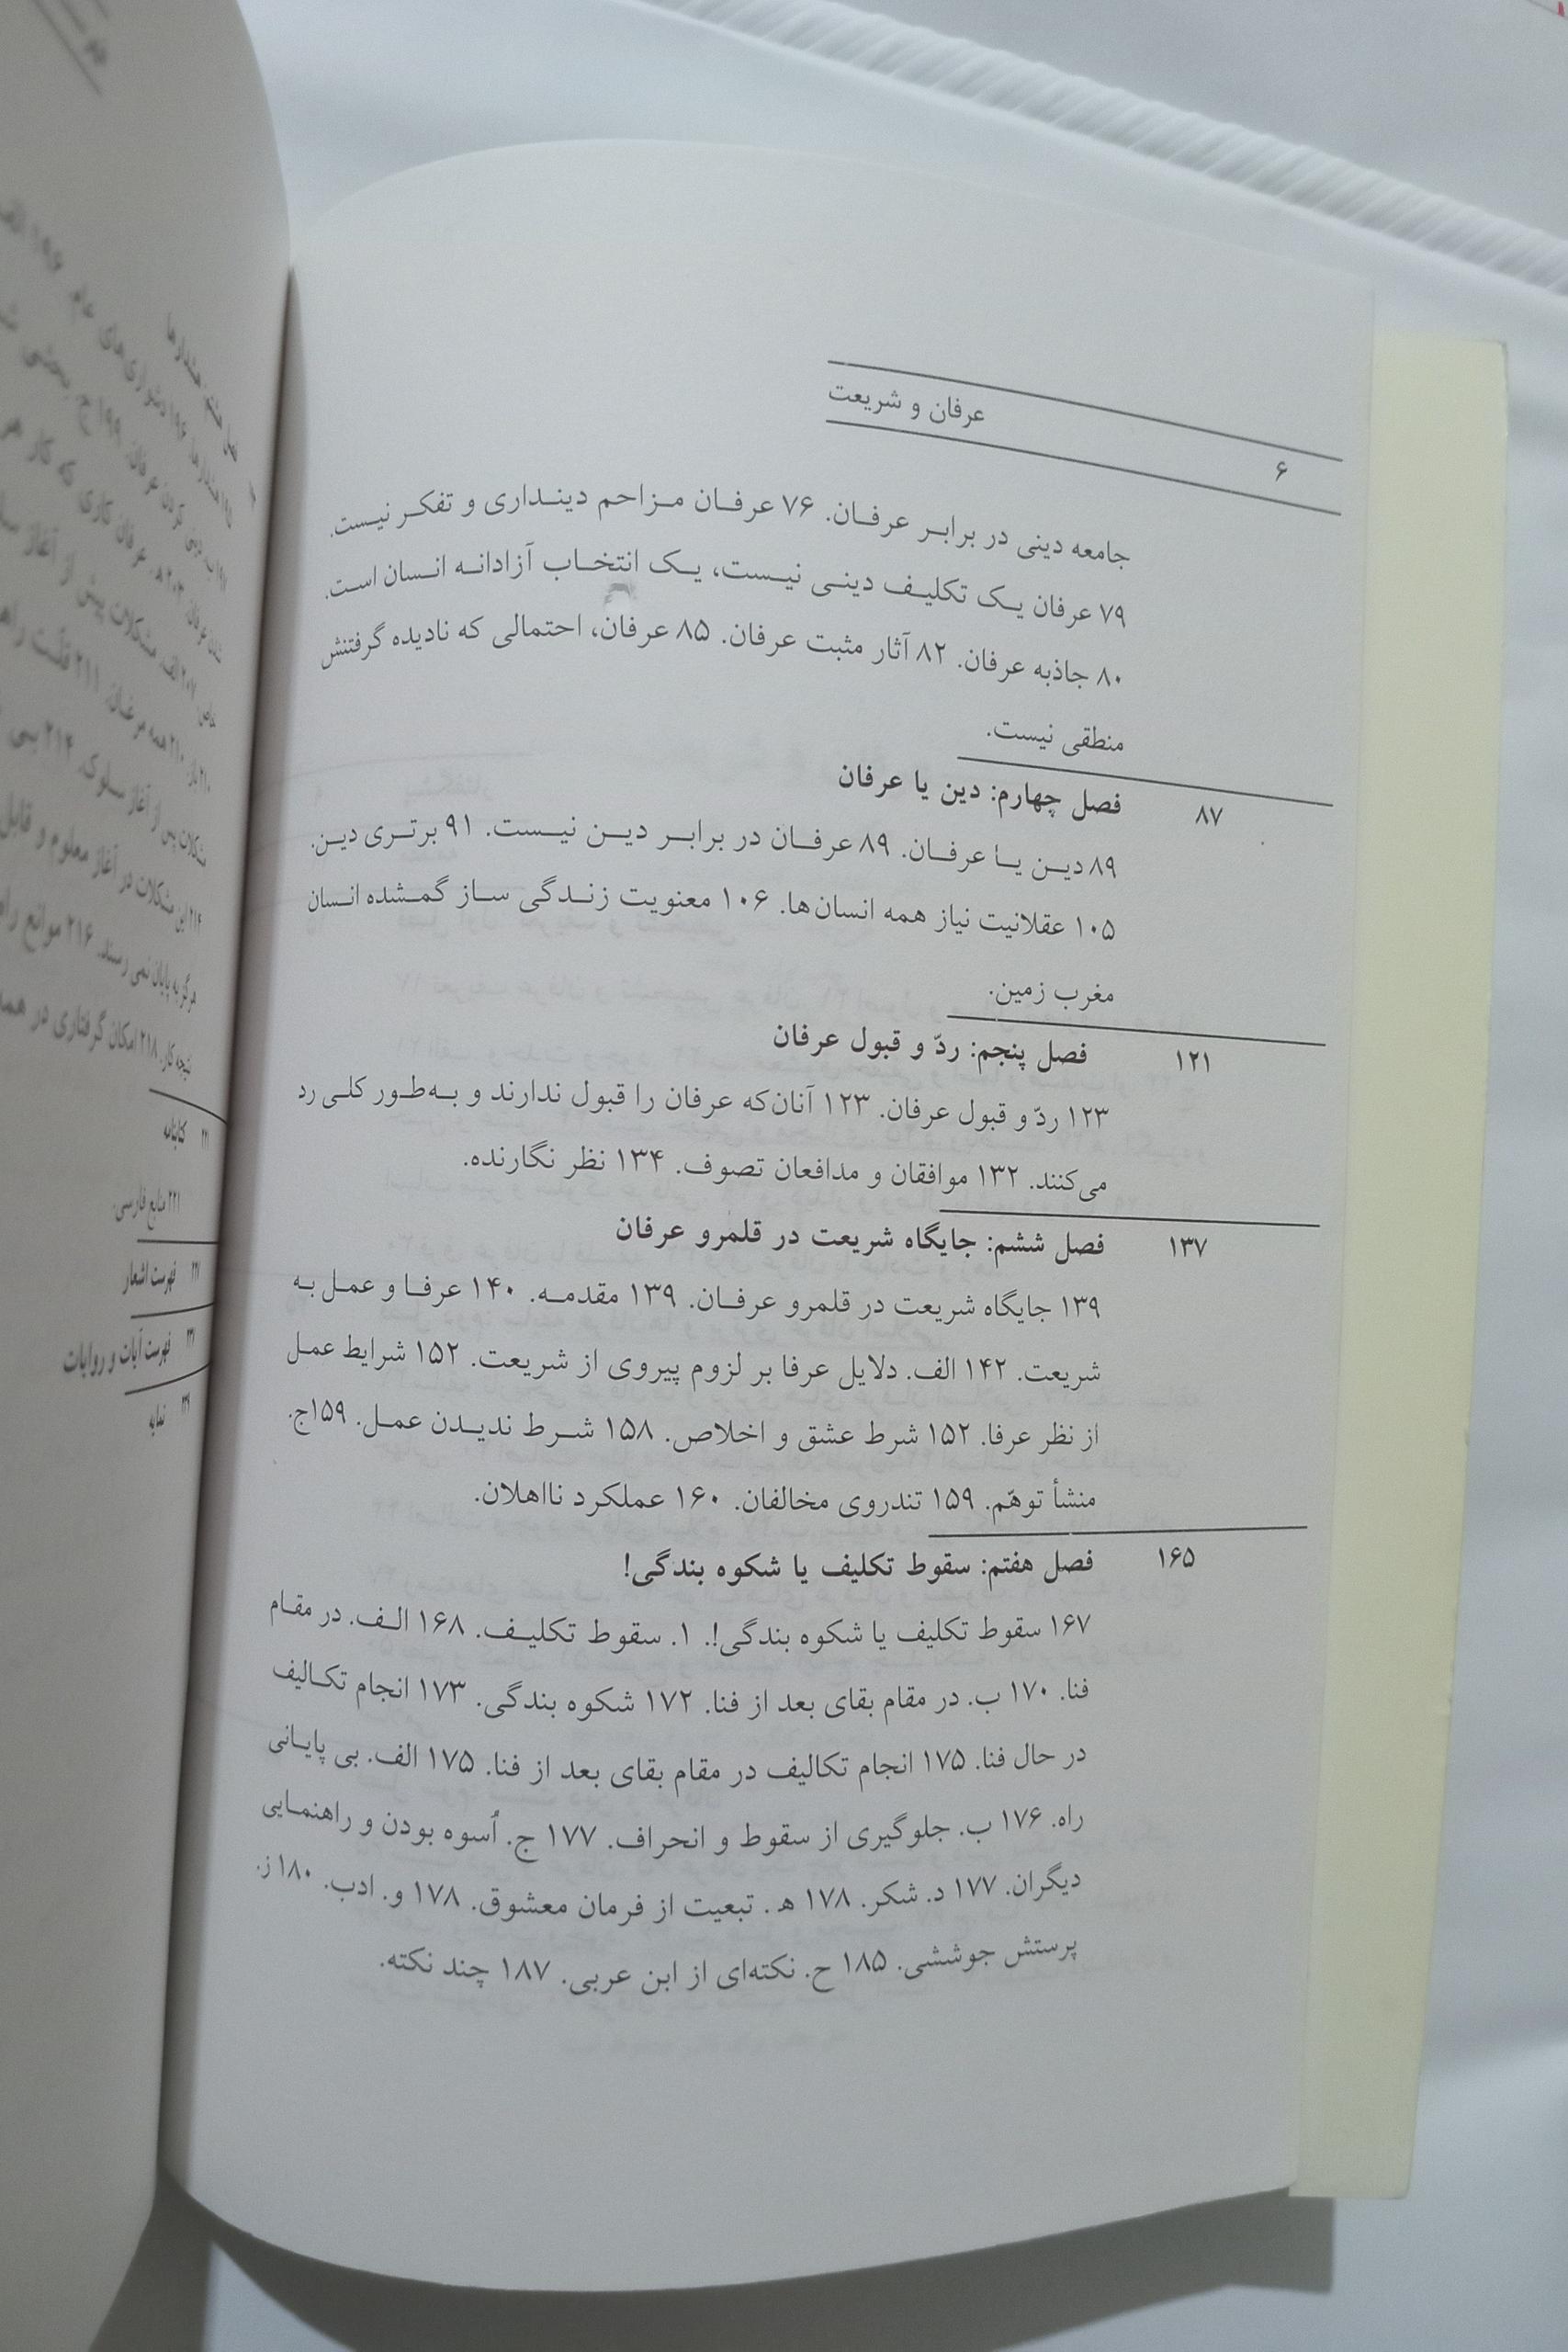 عرفان و شریعت
۶
جامعه دینی در برابر عرفان. ۷۶ عرفان مزاحم دینداری و تفکر نیست.
۷۹ عرفان یک تکلیف دینی نیست، یک انتخاب آزادانه انسان است.
۸۰ جاذبه عرفان. ۸۲ آثار مثبت عرفان. ۸۵ عرفان، احتمالی که نادیده گرفتنش
منطقی نیست.
۸۷ فصل چهارم: دین یا عرفان
۸۹ دین یا عرفان. ۸۹ عرفان در برابر دین نیست. ۹۱ برتری دین.
۱۰۵ عقلانیت نیاز همه انسان‌ها. ۱۰۶ معنویت زندگی ساز گمشده انسان
مغرب زمین.
۱۲۱ فصل پنجم: ردّ و قبول عرفان
۱۲۳ ردّ و قبول عرفان. ۱۲۳ آنان‌که عرفان را قبول ندارند و به‌طور کلی رد
می‌کنند. ۱۳۲ موافقان و مدافعان تصوف. ۱۳۴ نظر نگارنده.
۱۳۷ فصل ششم: جایگاه شریعت در قلمرو عرفان
۱۳۹ جایگاه شریعت در قلمرو عرفان. ۱۳۹ مقدمه. ۱۴۰ عرفا و عمل به
شریعت. ۱۴۲ الف. دلایل عرفا بر لزوم پیروی از شریعت. ۱۵۲ شرایط عمل
از نظر عرفا. ۱۵۲ شرط عشق و اخلاص. ۱۵۸ شرط ندیدن عمل. ۱۵۹ج.
منشأ توهّم. ۱۵۹ تندروی مخالفان. ۱۶۰ عملکرد نااهلان.
۱۶۵ فصل هفتم: سقوط تکلیف یا شکوه بندگی!
۱۶۷ سقوط تکلیف یا شکوه بندگی!. ۱. سقوط تکلیف. ۱۶۸ الف. در مقام
فنا. ۱۷۰ ب. در مقام بقای بعد از فنا. ۱۷۲ شکوه بندگی. ۱۷۳ انجام تکالیف
در حال فنا. ۱۷۵ انجام تکالیف در مقام بقای بعد از فنا. ۱۷۵ الف. بی پایانی
راه. ۱۷۶ ب. جلوگیری از سقوط و انحراف. ۱۷۷ ج. اُسوه بودن و راهنمایی
دیگران. ۱۷۷ د. شکر. ۱۷۸ ه‍ . تبعیت از فرمان معشوق. ۱۷۸ و. ادب. ۱۸۰ ز.
پرستش جوششی. ۱۸۵ ح. نکته‌ای از ابن عربی. ۱۸۷ چند نکته.
مشکلات پس از آغاز سلوک. ۲۱۴
۲۱۴ این مشکلات در آغاز معلوم و قابل
هرگز به پایان نمی رسند. ۲۱۶ موانع راه
نتیجه کار. ۲۱۸ امکان گرفتاری در همه
۲۲۱ کتابنامه
۲۲۱ منابع فارسی.
فهرست اشعار
فهرست آیات و روایات
نمایه